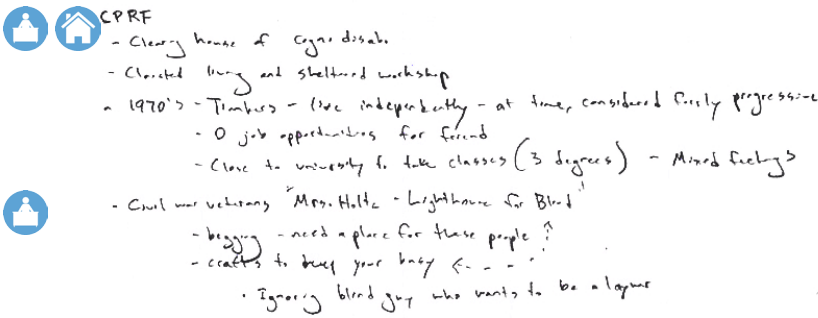 CPRF
- Clearing house of cogno disab.
- Cloisted living and sheltered workshop
- 1970's - Timbers - live independently - at time, considered fairly progressive
- 0 job opportunities for friend
- Close to university to take classes (3 degrees) - Mixed feelings
- Civil war veterans "Mrs. Holtz - Lighthouse for Blind"
- begging - need a place for these people ↑
- crafts to keep your busy ← - - -
• Ignoring blind guy who wants to be a lawyer